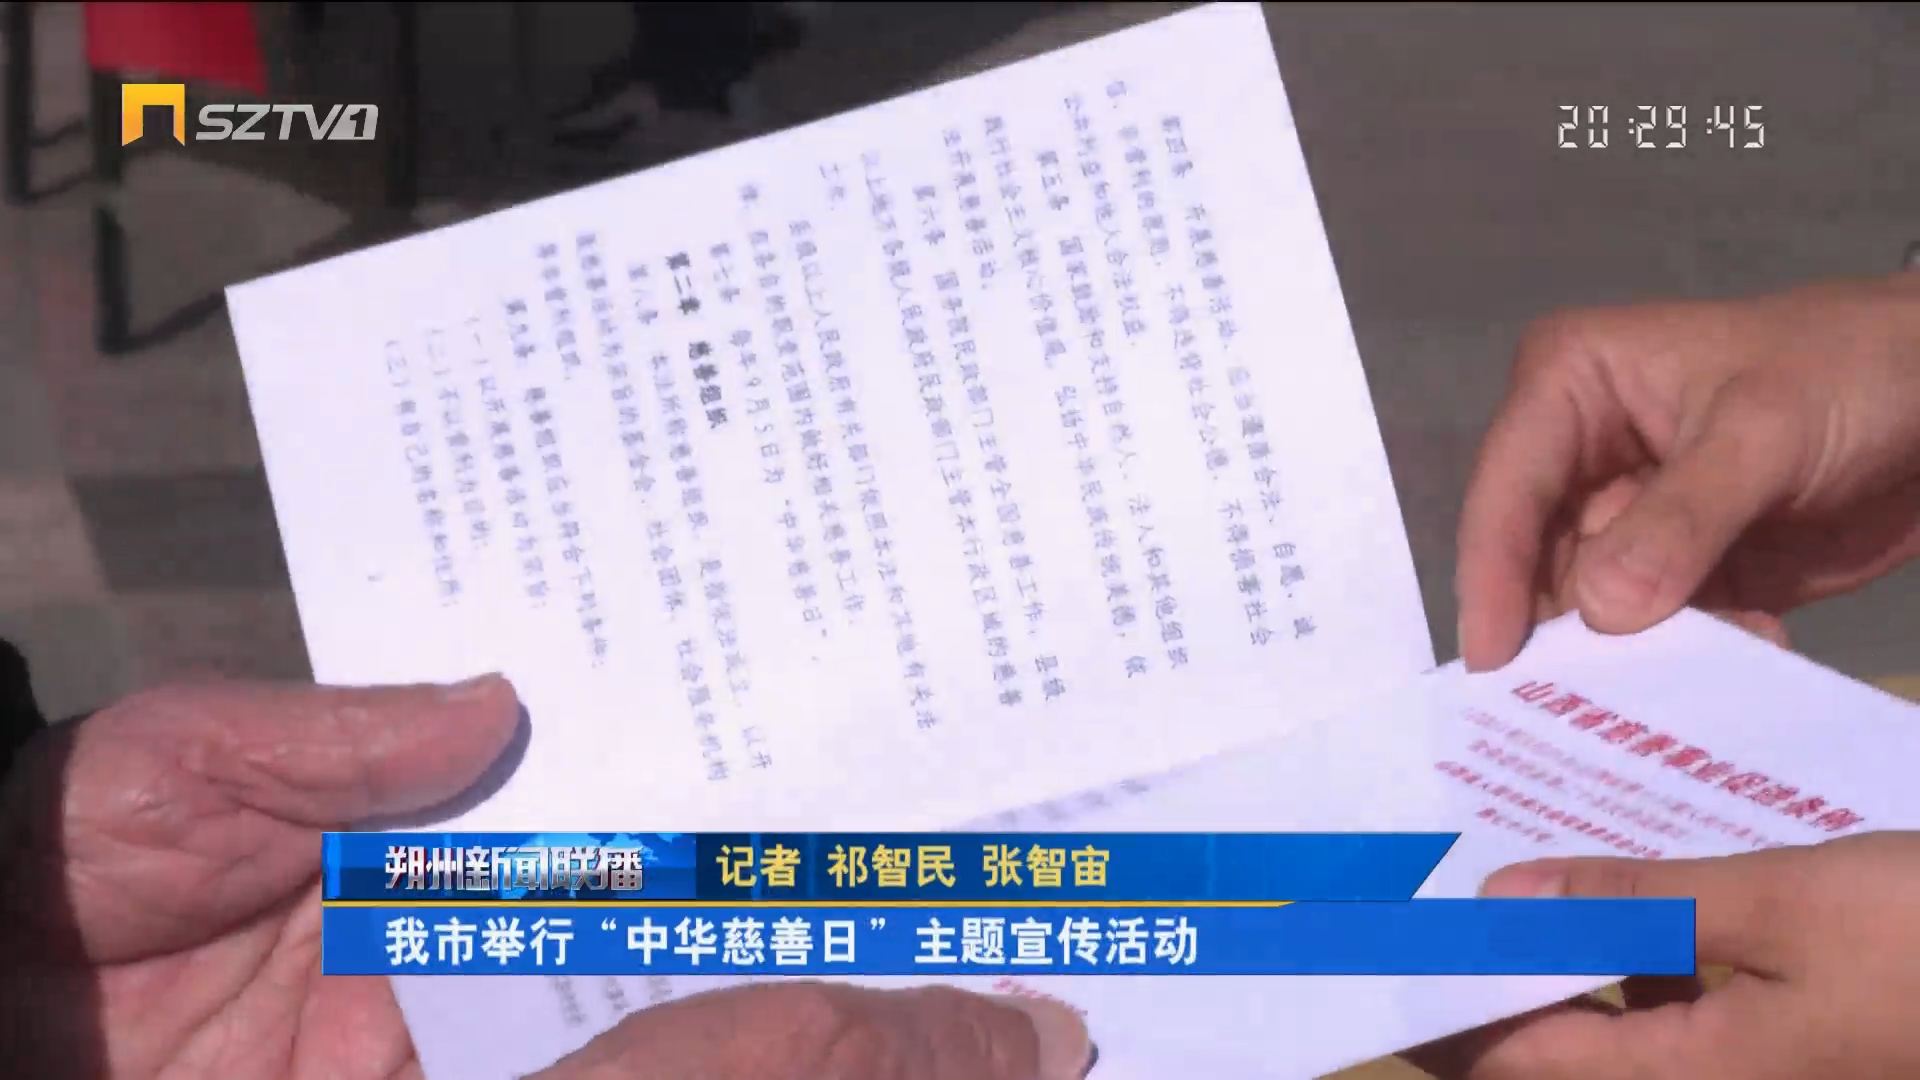 SZTV1
20:29:45
第四条 开展慈善活动，应当遵循合法、自愿、诚
信、非营利的原则，不得违背社会公德，不得损害社会
公共利益和他人合法权益。
第五条 国家鼓励和支持自然人、法人和其他组织
践行社会主义核心价值观，弘扬中华民族传统美德，依
法开展慈善活动。
第六条 国务院民政部门主管全国慈善工作，县级
以上地方各级人民政府民政部门主管本行政区域的慈善
工作。
县级以上人民政府有关部门依照本法和其他有关法
律，在各自的职责范围内做好相关慈善工作。
第七条 每年9月5日为“中华慈善日”。
第二章 慈善组织
第八条 本法所称慈善组织，是指依法成立、以开
展慈善活动为宗旨的基金会、社会团体、社会服务机构
等非营利组织。
第九条 慈善组织应当符合下列条件：
（一）以开展慈善活动为宗旨；
（二）不以营利为目的；
（三）有自己的名称和住所；
山西省慈善事业促进条例
朔州新闻联播
记者 祁智民 张智宙
我市举行“中华慈善日”主题宣传活动